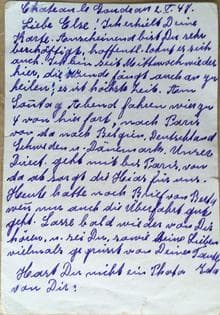 Chateau le Coudon 2. V. 48.
Liebe Else! Ich erhielt Deine
Karte. Anscheinend bist Du sehr
beschäftigt, hoffentl. lohnt es sich
auch. Ich bin seit Mittwoch wieder
hier, die Wunde fängt auch an zu
heilen, es ist höchste Zeit. Am
Sontag Abend fahren wir zu
4 von hier fort, nach Paris
von da nach Belgien, Deutschland
Schweden u. Dänemark. Unser
Direct. geht mit bis Paris, von
da ab sorgt die Hias für uns.
Heute hatte noch Brief von Berta
wenn nur auch die Überfahrt gut
geht. Lasse bald wieder von Dir
hören, u. sei Du, sowie Deine Lieben
vielmals gegrüsst von Deine Tante
Hast Du nicht ein Photo
von Dir?